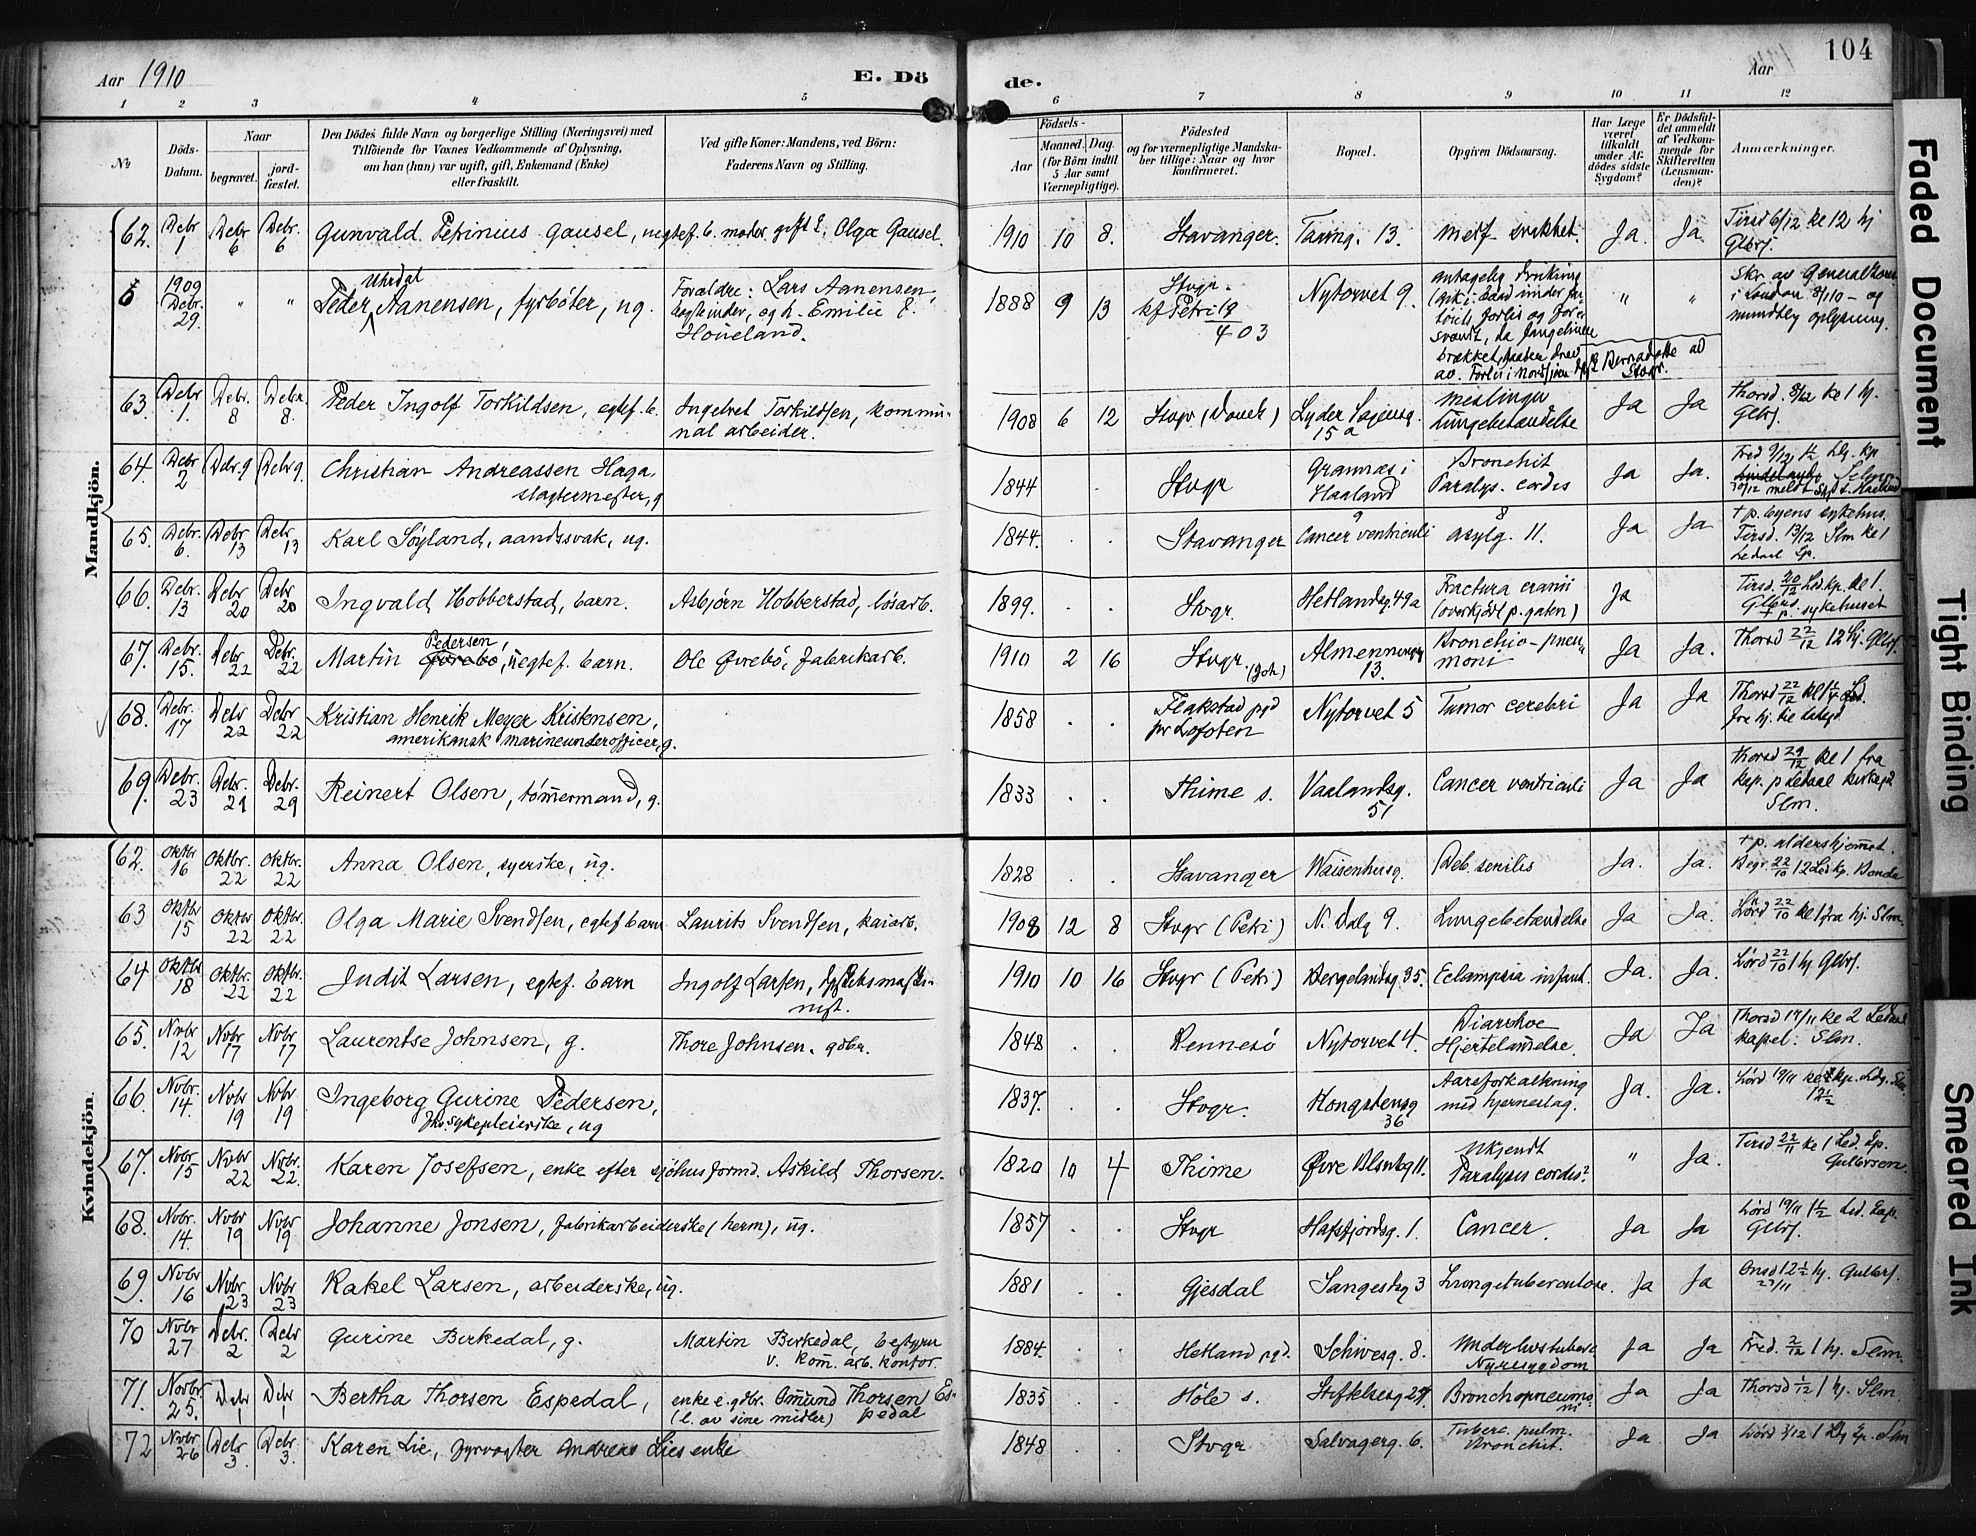 Aar 1910 E. Dö
de. Aar 104
1 2 3 4 5 6 7 8 9 10 11 12
No
Döds-Datum.
Naar
begravet.
jord-fæstet.
Den Dödes fulde Navn og borgerlige Stilling (Næringsvei) med
Tilföiende for Voxnes Vedkommende af Oplysning,
om han (hun) var ugift, gift, Enkemand (Enke)
eller fraskilt.
Ved gifte Koner: Mandens, ved Börn:
Faderens Navn og Stilling.
Födsels-
Aar
Maaned. Dag.
(for Börn indtil
5 Aar samt
Værnepligtige).
Födested
og for værnepligtige Mandska-
ber tillige: Naar og hvor
konfirmeret.
Bopæl.
Opgiven Dödsaarsag.
Har Læge
været
tilkaldt
under Af-
dödes sidste
Sygdom?
Er Dödsfal-
det anmeldt
af Vedkom-
mende for
Skifteretten
(Lensman-
den)?
Anmærkninger.
Mandkjön.
62. Debr 1 Debr 6 Debr. 6 Gunvald Petrinius Gausel, uegtef. b. moder gift E. Olga Gausel. 1910 10 8. Stavanger. Taarng. 13. Medf. svakhet. Ja. Ja. Tirsd 6/12 kl 12 hj
Glbrs.
1909 Debr. 29. " " Peder Uhrdal Aanensen, fyrböter, ug. Forældre: Lars Aanensen, og h. Emilie E. Houeland. 1888 9 13 Stvgr. kf Petri 19/4 03 Nytorvet 9. " "
63. Debr 1. Debr. 8 Debr. 8. Peder Ingolf Torkildsen, egtef. b. Ingebret Torkildsen, kommu-
nal arbeider. 1908 6 12 Stvgr (Domk) Lyder Sagensg. 15 a Meslinger
Lungebetændelse Ja Ja Thorsd. 8/12 kl 1 hj.
Glbrs.
64. Debr 2 Debr. 9 Debr 9. Christian Andreassen Haga,
slagtermester, g 1844 . Stvgr Grannæs i
Haaland Bronchit
Paralys. cordis Ja Ja.
65. Debr. 6. Debr 13 Debr 13 Karl Söyland, aandssvak, ug. 1844. . . Stavanger Cancer ventriculi asylg. 11. Ja Ja + p. byens sykehus.
Tirsd. 13/12 Slm kl 1
Ledaal Cp.
66. Debr. 13 Debr 20 Debr 20 Ingvald Hobberstad, barn. Asbjörn Hobberstad, lösarb. 1899. . . Stvgr. Hetlandsg. 49 a Fractura cranii
(overkjört p. gaten) Ja Tirsd. 20/12 Led. kp. kl 1.
Glbrs.
+ p. sykehuset
67. Debr. 15. Debr 22 Debr. 22 Martin Øvrebö Pedersen, uegtef. barn. Ole Øvrebö, fabrikarb. 1910 2 16 Stvgr. (Joh) Almenningg 13. Bronchio-pneu-
moni Ja Ja Thorsd 22/12 12 hj. Glbrs.
68. Debr. 17 Debr 22 Debr 22 Kristian Henrik Meyer Kristensen,
amerikansk marineunderofficer, g. 1858 . . Flakstad pgd
pr Lofoten Nytorvet 5 Tumor cerebri Ja Ja
69. Debr. 23 Debr. 29 Debr. 29 Reinert Olsen, tömmermand, g. 1833 . . Thime s. Vaalandsg. 51 Cancer ventriculi Ja Ja Thorsd 29/12 kl 1 fra
kap. p Ledaal kirkegd
Slm.
Kvindekjön.
62. Oktbr 16 Oktbr. 22 Oktbr. 22 Anna Olsen, syerske, ug. 1828 . . Stavanger Waisenhusg. Deb. senilis Ja. Ja. + p. aldershjemmet.
Begr. 22/10 12 Led kp. Bonde
63 Oktbr 15 Oktbr 22 Oktbr. 22 Olga Marie Svendsen, egtef. barn Laurits Svendsen, kaiarb. 1908 12 8 Stvgr (Petri) N. Dalg 9. Lungebetændelse Ja Ja. Lörd 22/10 kl 1 fra hj. Slm
64 Oktbr 18 Oktbr. 22 Oktbr. 22 Judit Larsen, egtef. barn Ingolf Larsen,
1910 10 16 Stvgr (Petri) Bergelandsg 35. Eclampsia infant. Ja. Ja. Lörd 22/10 1 hj Glbrs.
65. Nvbr 12 Nvbr 17 Nvbr 17 Laurentse Johnsen, g. Thore Johnsen, gdbr. 1848 . . Rennesö Nytorvet 4. Diarrhoe
Hjertelamelse. Ja Ja Thorsd 17/11 kl 2 Ledaal
kapel. Slm.
66. Nvbr. 14. Nvbr 19 Nvbr 19 Ingeborg Gurine Pedersen,
fhv. sykepleierske, ug 1837. . . Stvgr. Kongstensg 36 Aareforkalkning
med hjerneslag. Ja. Ja.
67. Nvbr. 15 Nvbr 22 Nvbr. 22. Karen Josefsen, enke efter sjöhusformd. Askild Thorsen. 1820 10 4 Thime Øvre Blaasbg 11. Ukjendt
Paralysis cordis? " Ja. Tirsd 22/11 kl 1 Led. Cp.
Gulbrsen
68. Nvbr. 14. Nvbr 19 Nvbr 19 Johanne Jonsen, fabrikarbeiderske (herm), ug. 1857 . . Stvgr Hafsfjordsg. 1. Cancer. Ja Ja Lörd 19/11 1 1/2 Led. Kap.
Glbrs.
69. Nvbr 16 Nvbr. 23 Nvbr 23 Rakel Larsen, arbeiderske, ug. 1881 . . Gjesdal Sangesbg 3 Lungetuberculose. Ja Ja Onsd 12 1/2 hj. Gulbrs.
23/11
70 Nvbr 27 Debr. 2 Debr 2 Gurine Birkedal, g. Martin Birkedal, bestyrer
v. kom. arb. kontor. 1884. . . Hetland pgd. Schivesg. 8. Underlivstuberc
Nyresygdom Ja Ja Fred. 2/12 1 hj. Slm.
71. Novbr. 25. Debr 1 Debr 1 Bertha Thorsen Espedal, enke e. gdbr. Omund Thorsen Es-
(l. av sine midler) pedal 1835 . . Höle s. Stiftelsesg 27 Bronchopneumo-
ni Ja Ja Thorsd 1/12 1 hj. Slm.
72 Novbr. 26 Debr. 3. Debr. 3. Karen Lie, fyrvogter Andreas Lies enke 1848 . . Stvgr Salvagerg. 6. Tuberc. pulm.
Bronchit. Ja Ja Lörd 3/12 1 Ldg Cp. Slm
Faded Document
Tight Binding
Smeared Ink